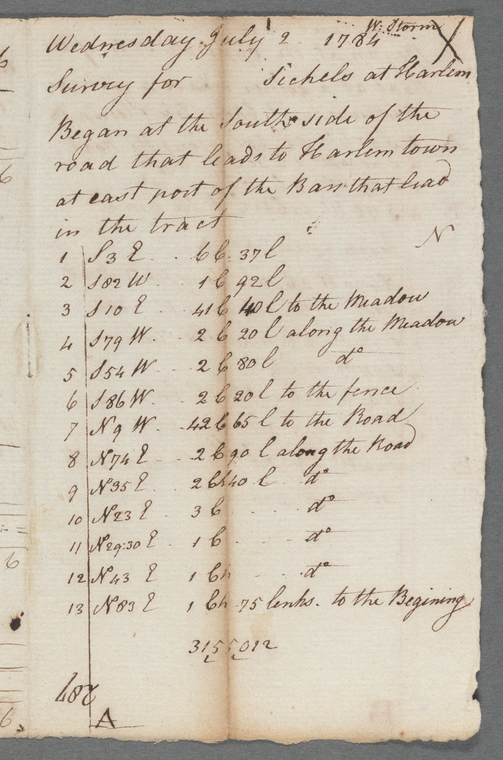 W. Storm
Wednesday July 2 1784
Survey for Sickels at Harlem
Began at the South side of the
road that leads to Harlem town
at east post of the Bars that lead
in the tract
N
1 S3 E 6 C 37 l
2 S82 W 1 C 92 l
3 S10 E 41 C 40 l to the Meadow
4 S79 W 2 C 20 l along the Meadow
5 S54 W 2 C 80 l do
6 S86 W 2 C 20 l to the fence
7 N9 W 42 C 65 l to the Road
8 N74 E 2 C 90 l along the Road
9 N35 E 2 Ch 40 l do
10 N23 E 3 C do
11 N29:30 E 1 C do
12 N43 E 1 Ch do
13 N83 E 1 Ch 75 lenks. to the Begining
3155012
A